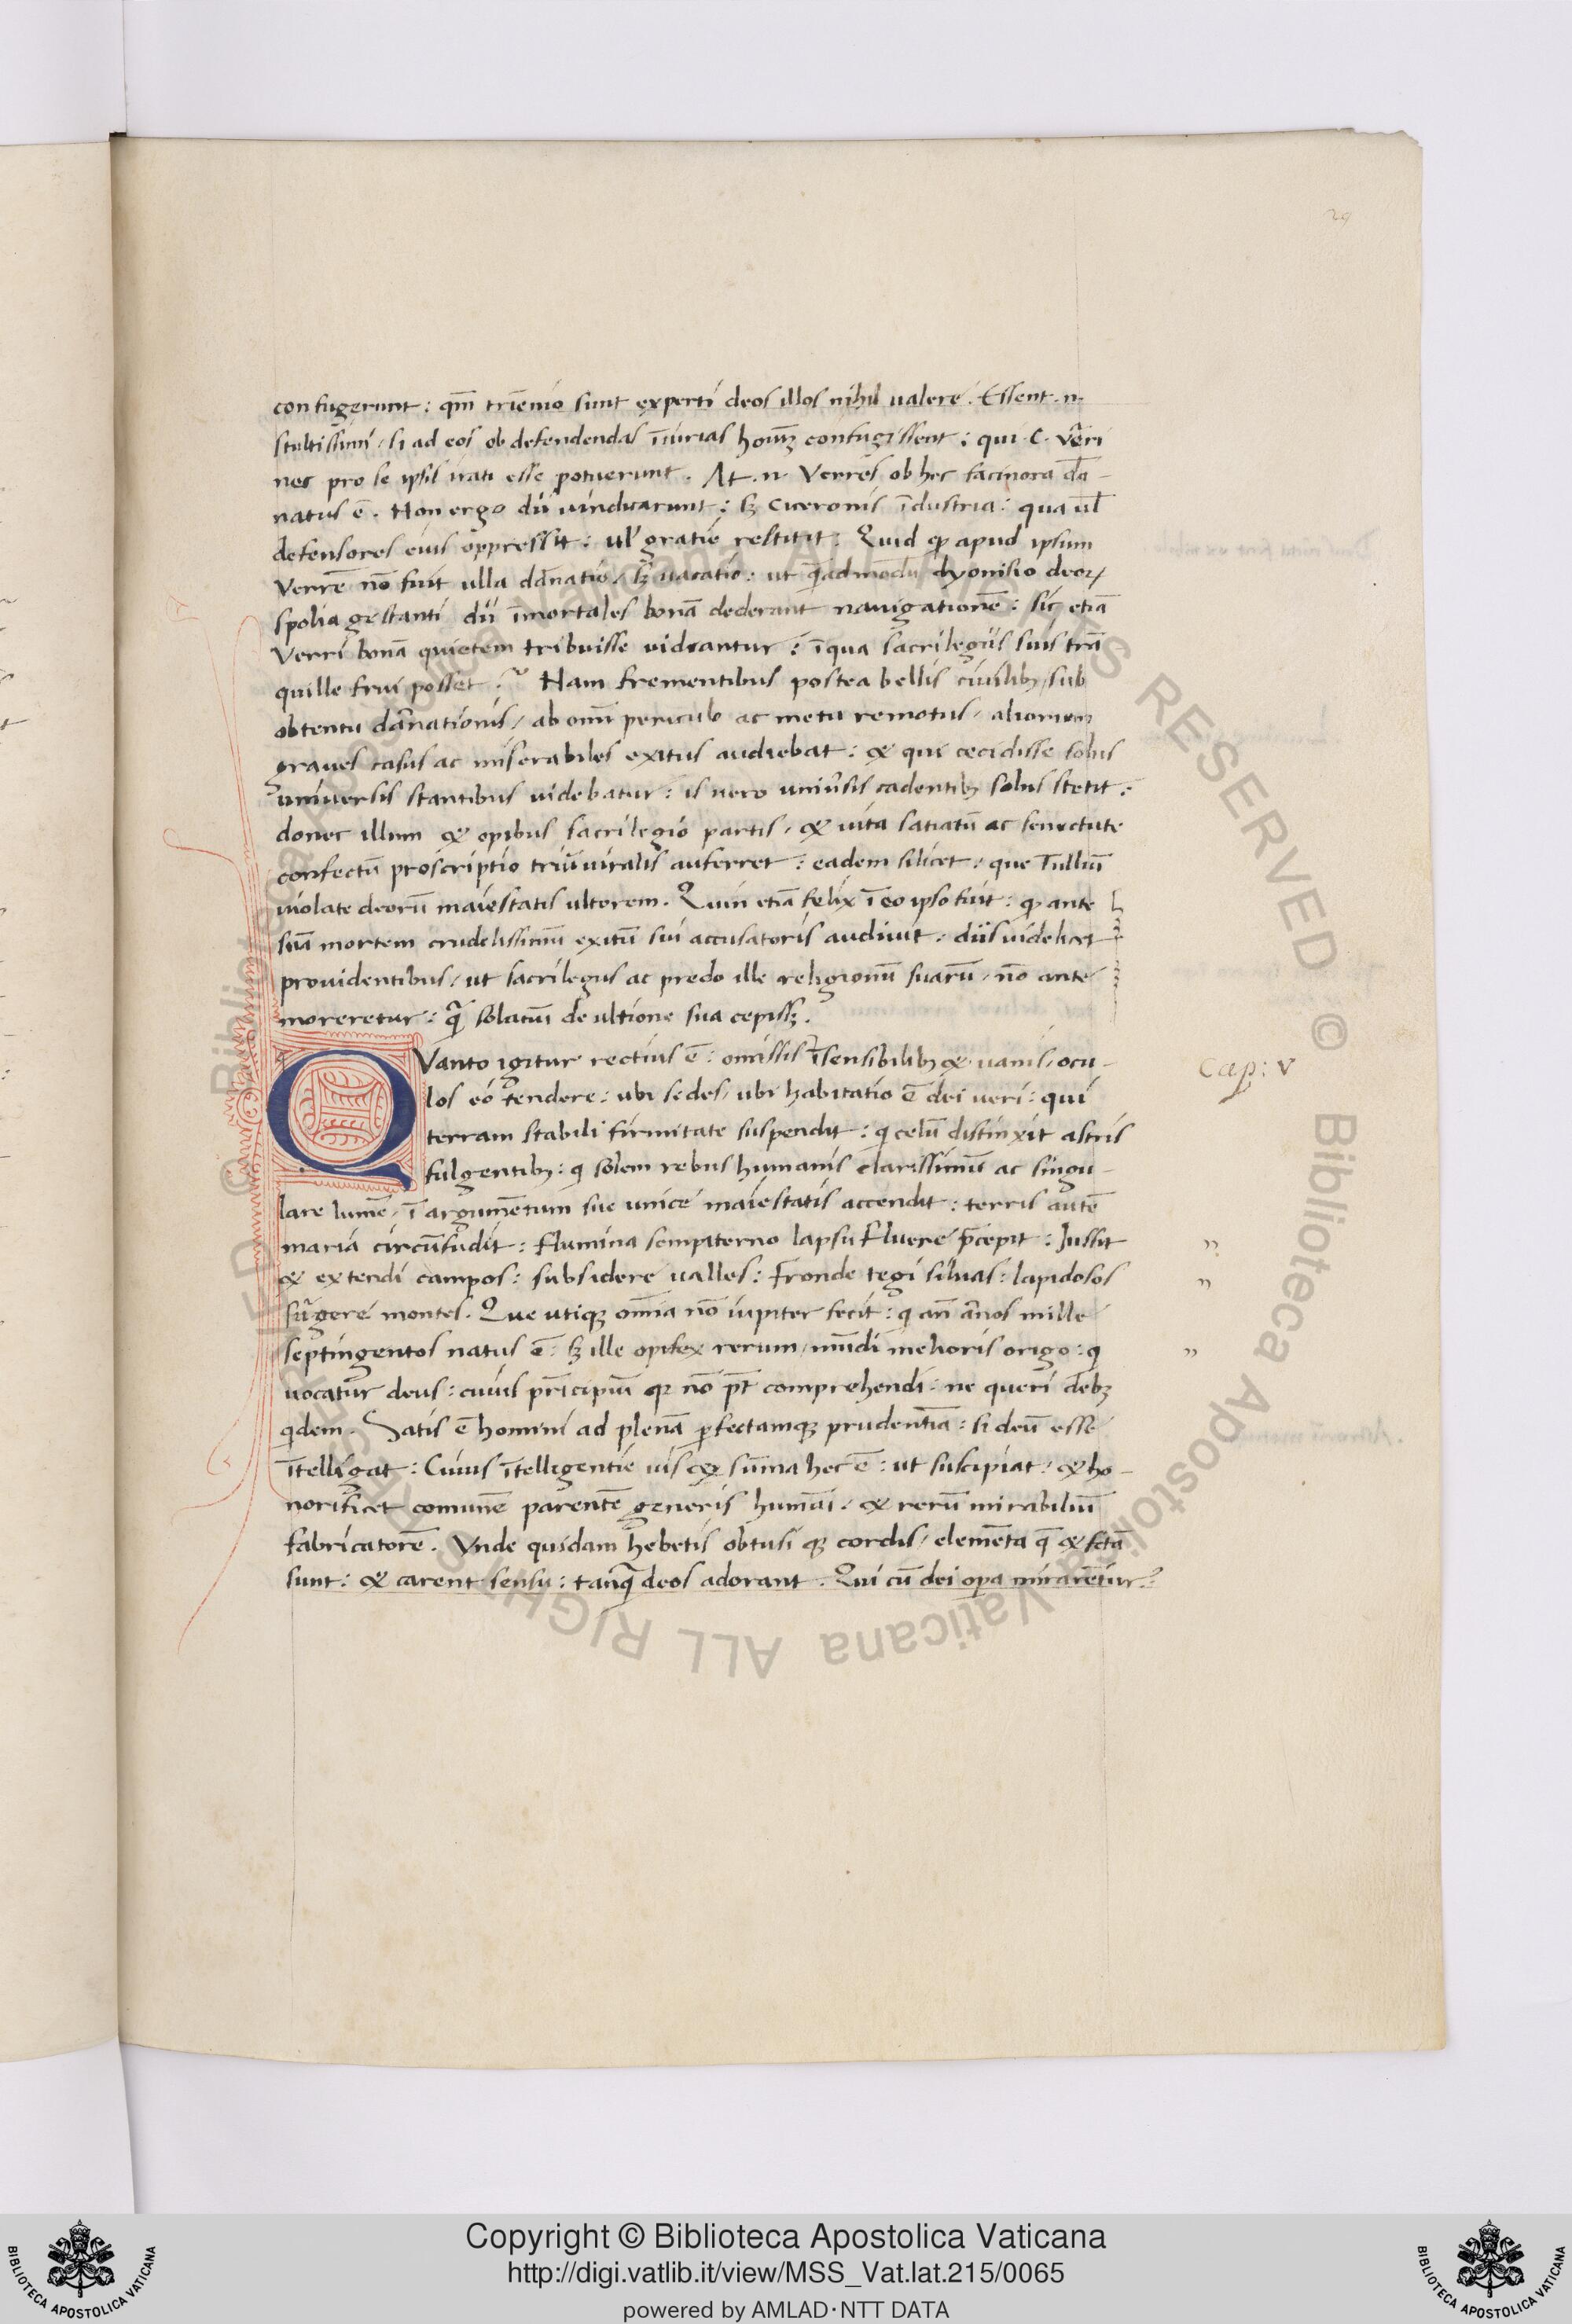 29
confugerunt: qm̄ triēnio sunt experti deos illos nihil ualere. Essent .n.
stultissimi / si ad eos ob defendendas īiurias hoīuȝ confugissent: qui .C. Verri
nec pro se ipsis irati esse potuerunt. At .n. Verres ob hec facinora dā-
natus ē. Non ergo dii uindicarunt: sȝ Ciceronis īdustria: qua uł
defensores eius oppressit: uł gratie restitit. Quid ꝙ apud ipsum
Verrē nō fuit ulla dānatio / sȝ uacatio: ut quēadmodū dyonisio deoꝝ
spolia gestanti dii īmortales bonā dederant nauigationē: sic etiā
Verri bonā quietem tribuisse uideantur: ī qua sacrilegiis suis trā
quille frui posset? Nam frementibus postea bellis ciuilibȝ / sub
obtentu dānationis / ab omni periculo ac metu remotus / aliorum
graues casus ac miserabiles exitus audiebat: & qui cecidisse solus
uniuersis stantibus uidebatur: is uero uniuersis cadentibȝ solus stetit:
donec illum & opibus sacrilegio partis / & uita satiatū ac senectute
confectū proscriptio triūuiralis auferret: eadem silicet: que Tulliū
uiolate deorū maiestatis ultorem. Quin etiā felix ī eo ipso fuit: ꝙ ante
suā mortem crudelissimū exitū sui accusatoris audiuit: diis uidelicet
prouidentibus / ut sacrilegus ac predo ille religionū suarū / nō ante
moreretur: q̄ solatium de ultione sua cepissȝ.
QVanto igitur rectius ē: omissis īsensibilibȝ & uanis / ocu-
los eo tendere: ubi sedes / ubi habitatio ē dei ueri: qui
terram stabili firmitate suspendit: q celū distinxit astris
fulgentibȝ: q solem rebus humanis clarissimū ac singu-
lare lumē / ī argumētum sue unice maiestatis accendit: terris autē
maria circūfudit: flumina sempiterno lapsu fluere p̄cepit: Iussit
& extendi campos: subsidere ualles: fronde tegi siluas: lapidosos
surgere montes. Que utiqȝ omnia nō iupiter fecit: q an̄ annos mille
septingentos natus ē: sȝ ille opifex rerum / mūdi melioris origo: q
uocatur deus: cuius prīcipiū qȝ nō pt̄ comprehendi: ne queri debȝ
qdem. Satis ē homini ad plenā perfectamqȝ prudentiā: si deū esse
ītelligat: Cuius ītelligentie uis & summa hec ē: ut suscipiat: & ho-
norificet comunē parentē generis humāi / & rerū mirabiliū
fabricatorē. Vnde quidam hebetis obtusi qȝ cordis / elemēta q̄ & fctā
sunt: & carent sensu: tanq̄ deos adorant. Qui cū dei opa mirarētur:
Cap: V
Copyright © Biblioteca Apostolica Vaticana
http://digi.vatlib.it/view/MSS_Vat.lat.215/0065
powered by AMLAD·NTT DATA
BIBLIOTECA APOSTOLICA VATICANA
BIBLIOTECA APOSTOLICA VATICANA
© Biblioteca Apostolica Vaticana ALL RIGHTS RESERVED
© Biblioteca Apostolica Vaticana ALL RIGHTS RESERVED